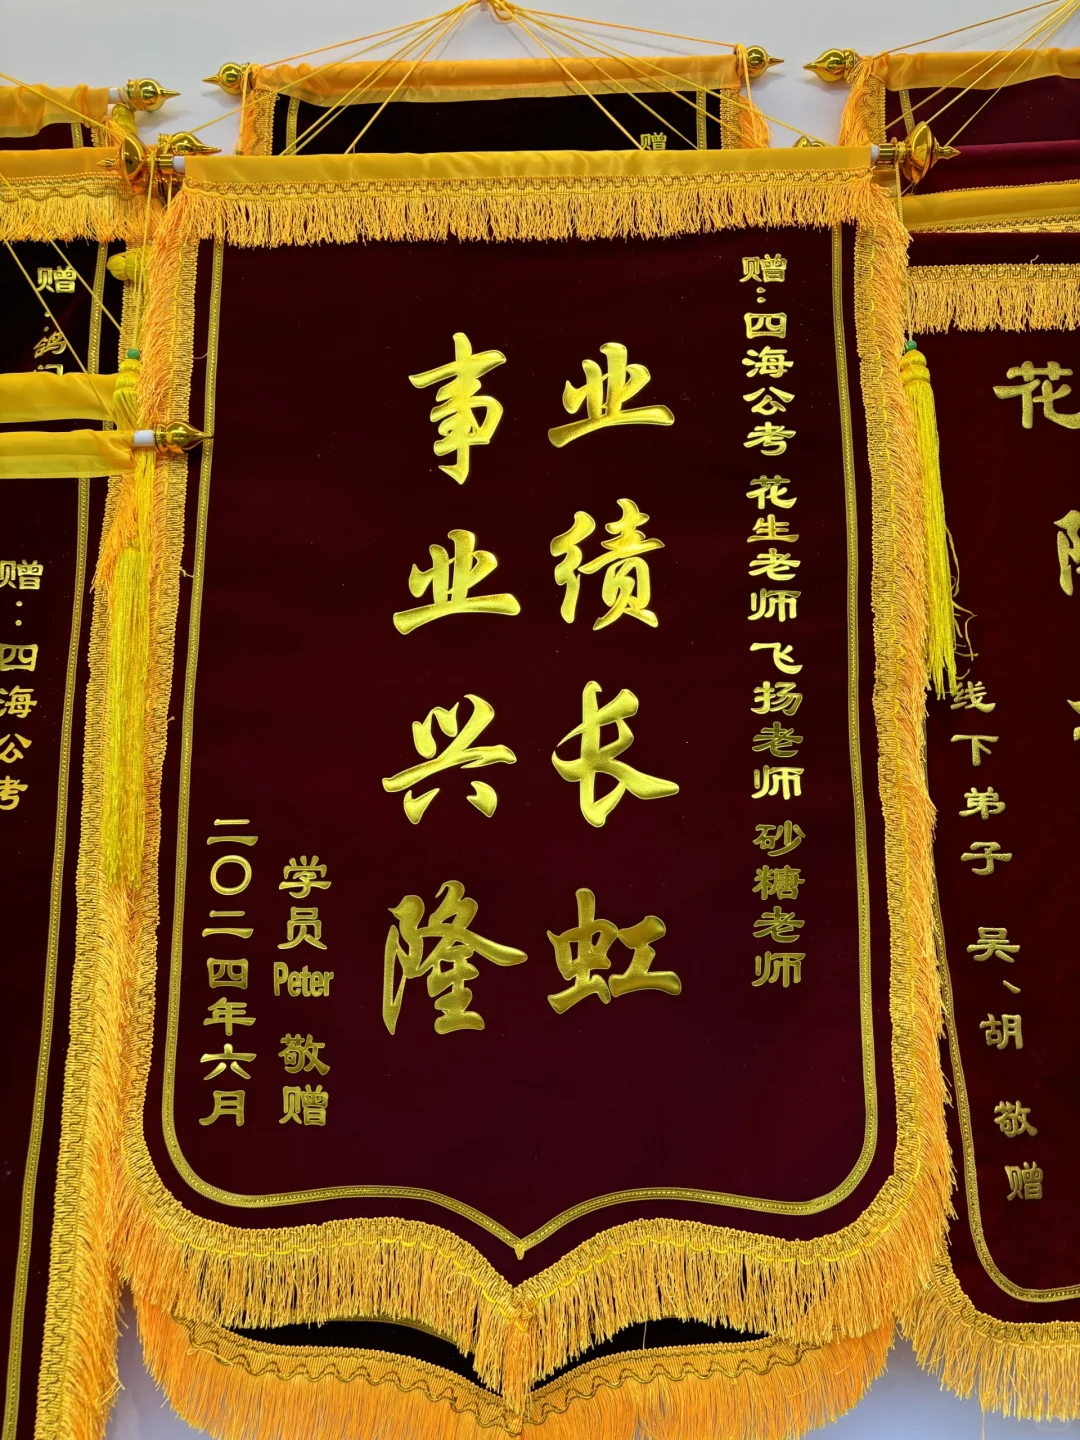 赠:四海公考 花生老师 飞扬老师 砂糖老师
业绩长虹
事业兴隆
学员Peter 敬赠
二〇二四年六月
赠
赠:鸽
赠:四海公考
花
线下弟子 吴、胡 敬赠